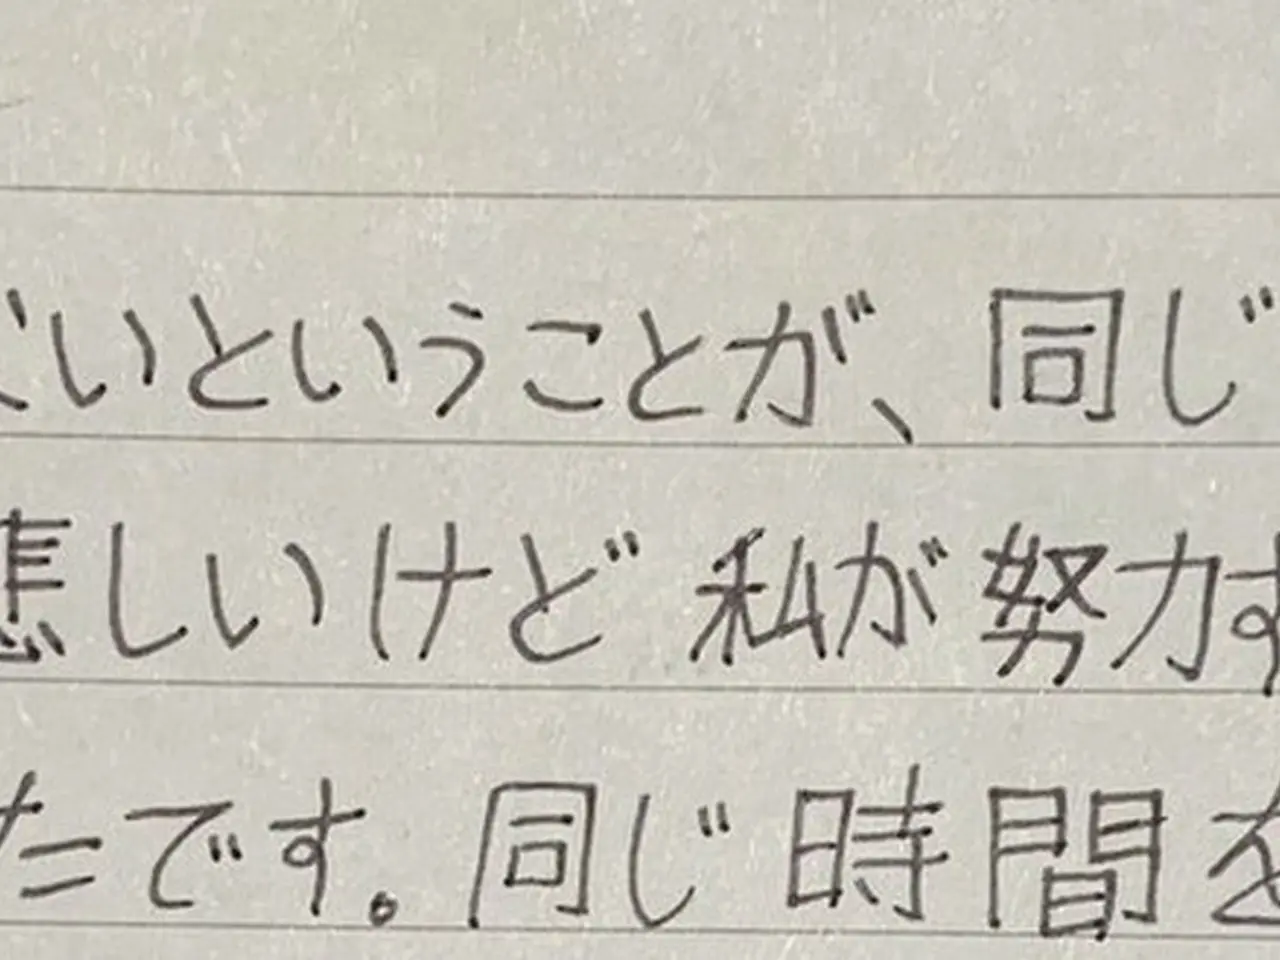 いということが、同じ
悲しいけど私が努力す
たです。同じ時間を